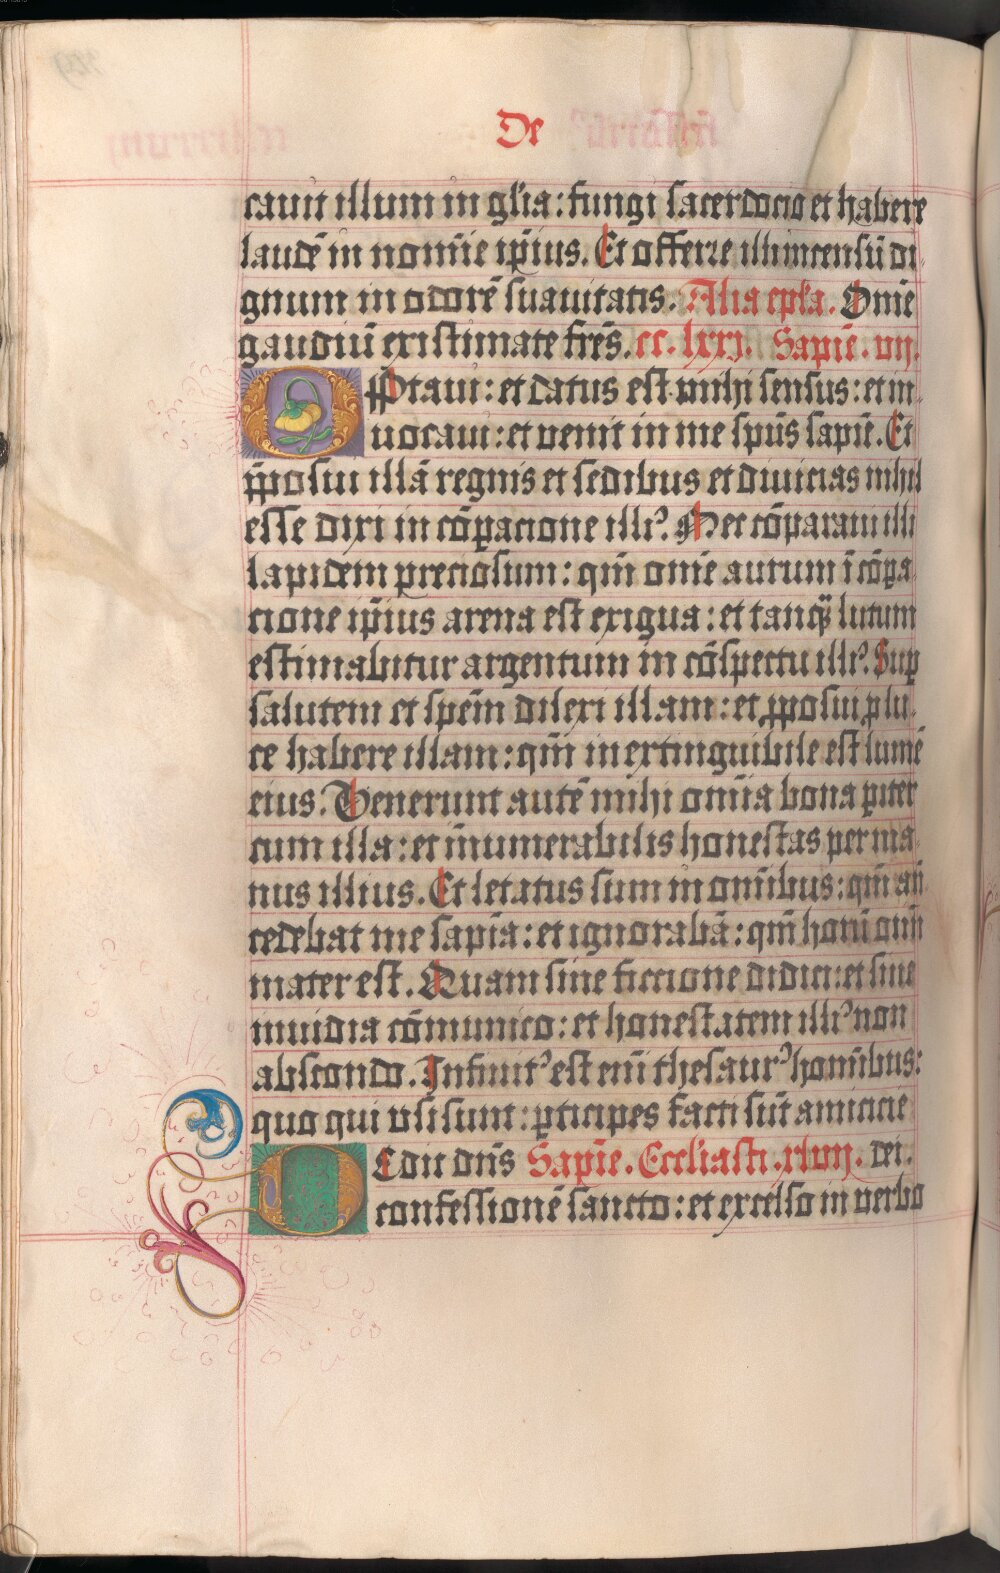 De
cauit illum in gl̄ia: fungi sacerdocio et habere
laudē in nomīe ip̄ius. Et offerre illi incensū di
gnum in odorē suauitatis. Alia ep̄la. Om̄e
gaudiū existimate frēs. cc. lxxj. Sapīe. vij.
Optaui: et datus est mihi sensus: et in
uocaui: et uenit in me sp̄us sapīe. Et
p̄posui illā regnis et sedibus et diuicias nihil
esse dixi in cōꝑacione illiꝰ. Nec cōparaui illi
lapidem preciosum: qm̄ om̄e aurum ī cōpa
cione ip̄ius arena est exigua: et tanqȝ lutum
estimabitur argentum in cōspectu illiꝰ. Suꝑ
salutem et spēm dilexi illam: et ꝓposui ꝓ lu
ce habere illam: qm̄ inextinguibile est lumē
eius. Venerunt autē mihi omīa bona ꝑiter
cum illa: et īnumerabilis honestas per ma
nus illius. Et letatus sum in omībus: qm̄ an̄
cedebat me sapīa: et ignorabā: qm̄ horū oīm
mater est. Quam sine ficcione didici: et sine
inuidia cōmunico: et honestatem illiꝰ non
abscondo. Infinitꝰ est enī thesaurꝰ homībus:
quo qui vsi sunt: ꝑticipes facti sūt amicicie
Dedit dn̄s Sapīe. Eccliasti. xlvij. dei.
confessionē sancto: et excelso in verbo